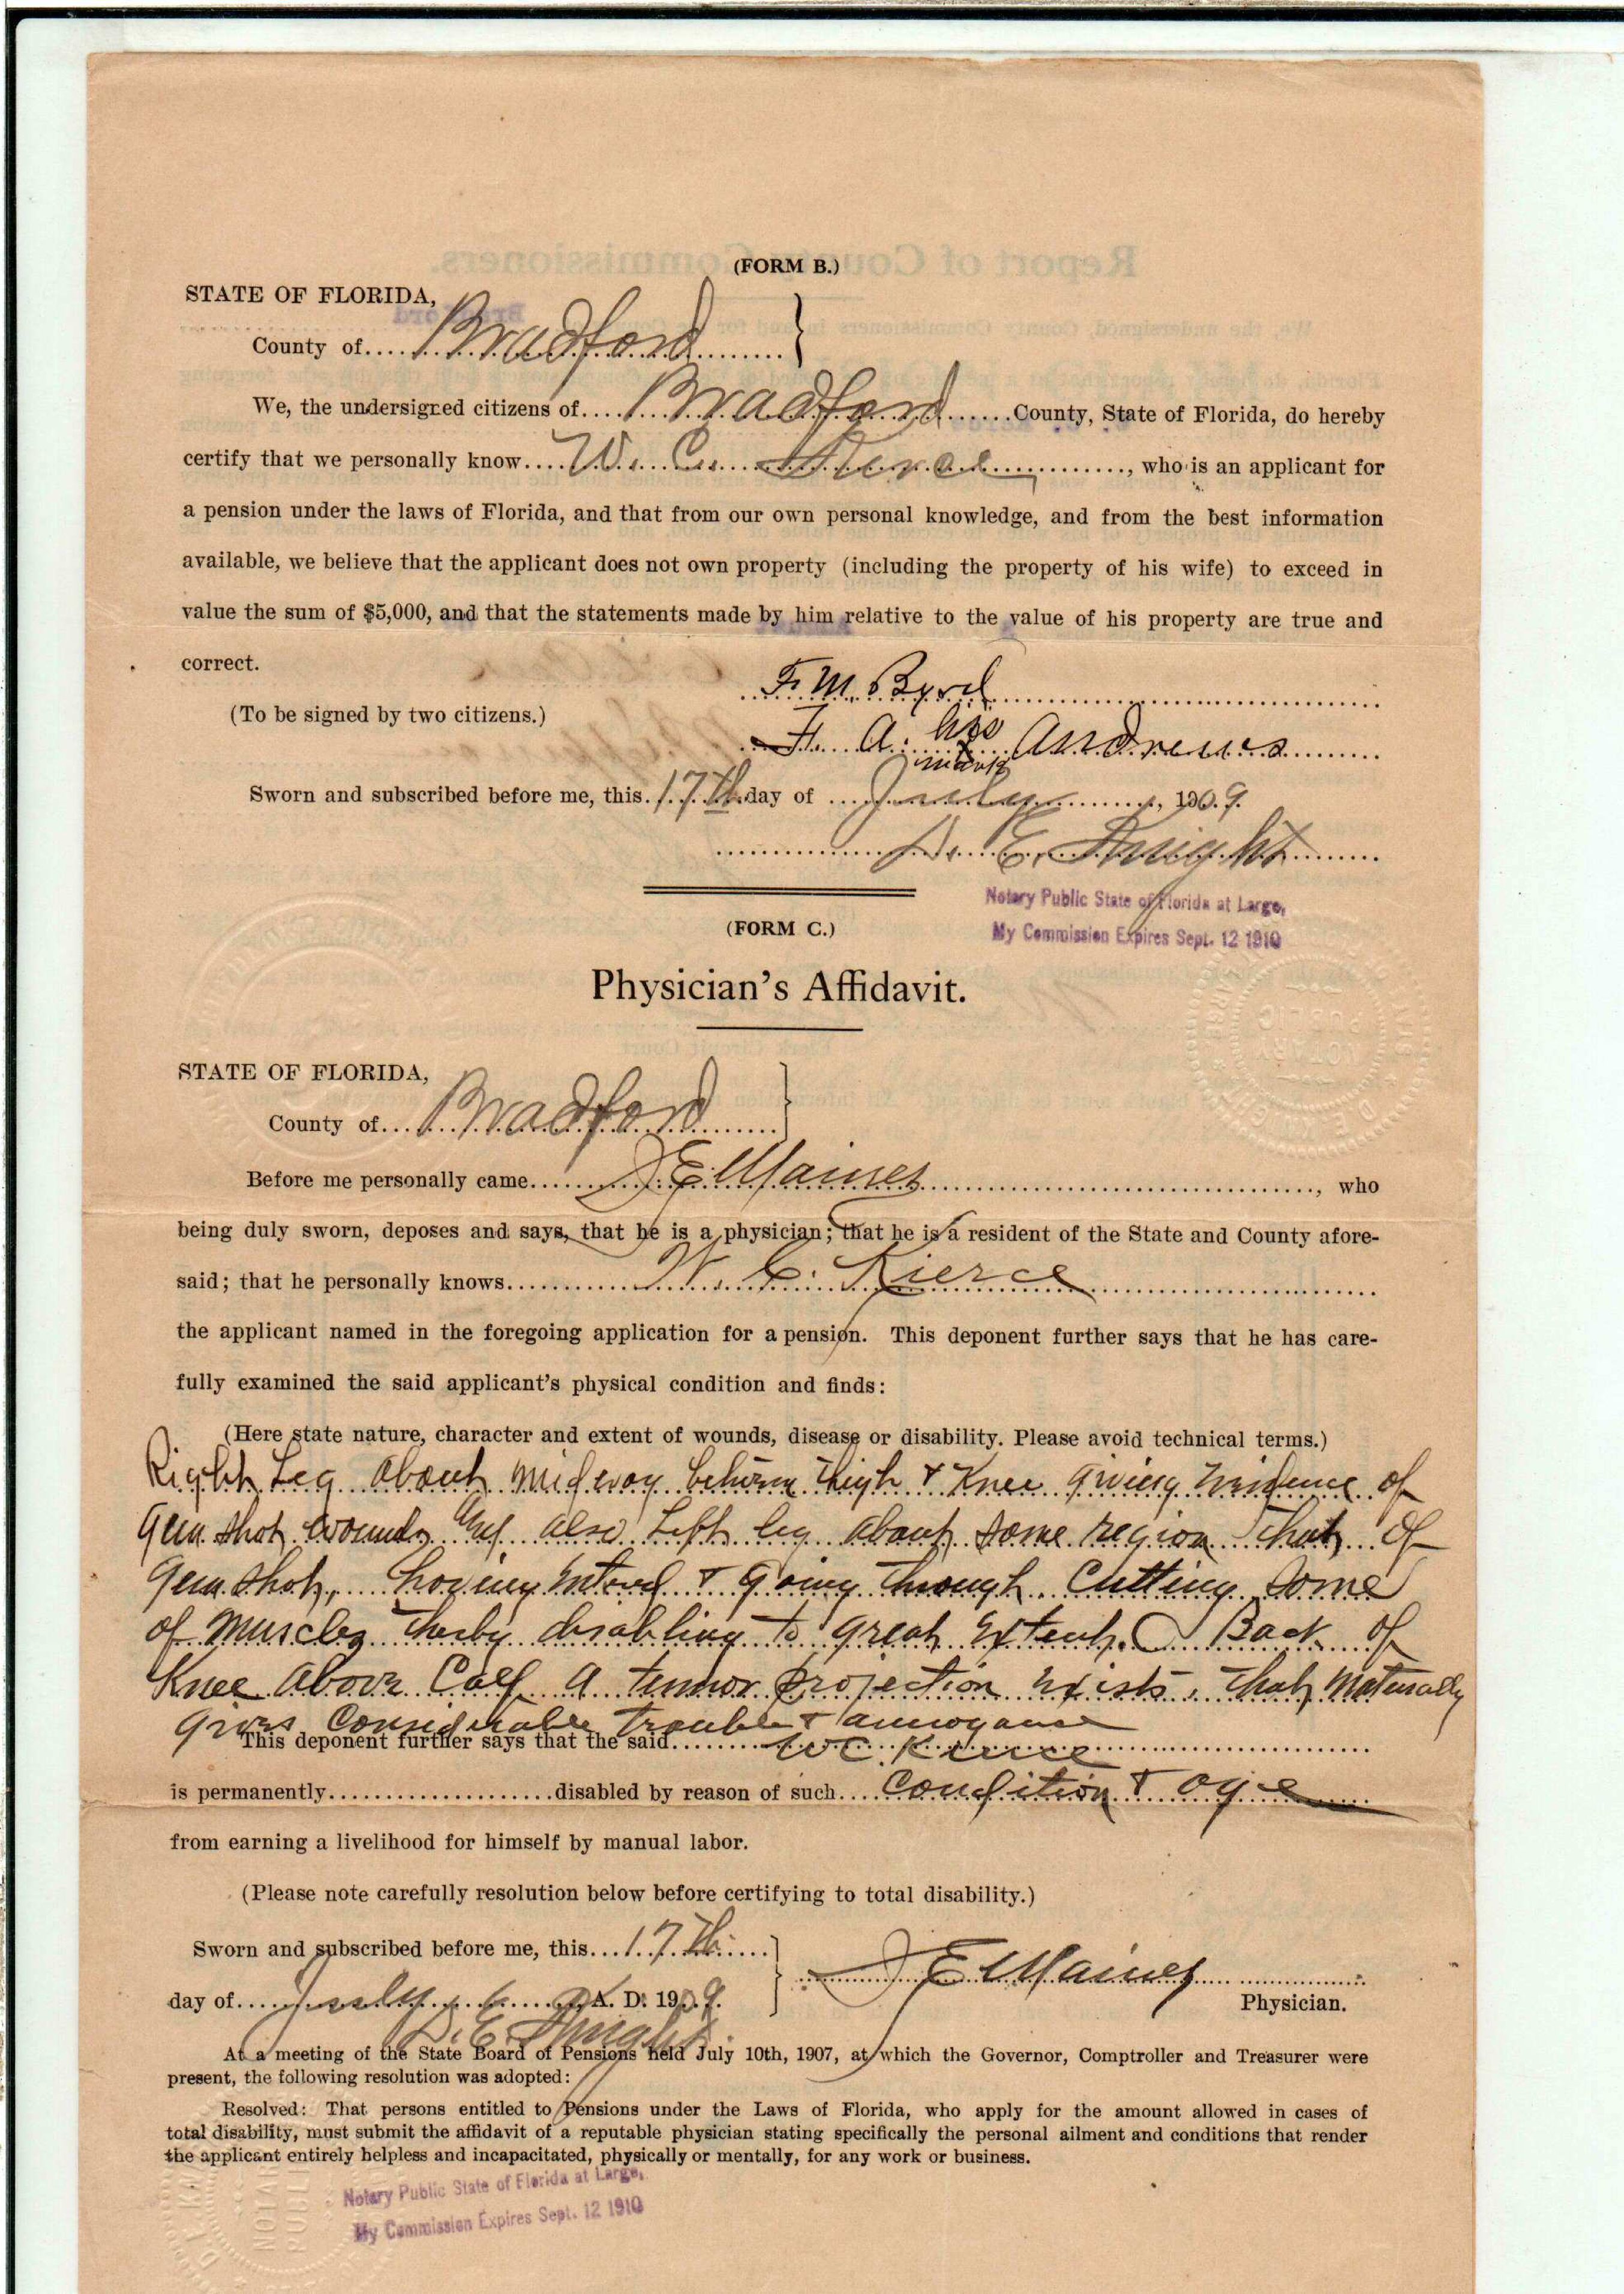 (FORM B.)
STATE OF FLORIDA,
County of Bradford
We, the undersigned citizens of Bradford County, State of Florida, do hereby
certify that we personally know W. C. Kierce, who is an applicant for
a pension under the laws of Florida, and that from our own personal knowledge, and from the best information
available, we believe that the applicant does not own property (including the property of his wife) to exceed in
value the sum of $5,000, and that the statements made by him relative to the value of his property are true and
correct.
F. M. Byrd
(To be signed by two citizens.)
F. A. his x mark Andrews
Sworn and subscribed before me, this 17th day of July, 1909.
D. E. Knight
Notary Public State of Florida at Large,
My Commission Expires Sept. 12 1910
(FORM C.)
Physician's Affidavit.
STATE OF FLORIDA,
County of Bradford
Before me personally came J E Maines, who
being duly sworn, deposes and says, that he is a physician; that he is a resident of the State and County afore-
said; that he personally knows W. C. Kierce
the applicant named in the foregoing application for a pension. This deponent further says that he has care-
fully examined the said applicant's physical condition and finds:
(Here state nature, character and extent of wounds, disease or disability. Please avoid technical terms.)
Right Leg about midway between thigh & Knee giving Evidence of
Gun shot wounds also Left leg about same region that of
Gun shot, having entered & going through Cutting some
of muscles disabling to great Extent. Back of
Knee above Calf a tumor projection exists, that naturally
gives Considerable trouble & annoyance
This deponent further says that the said W C. Kierce
is permanently disabled by reason of such Condition & age
from earning a livelihood for himself by manual labor.
(Please note carefully resolution below before certifying to total disability.)
Sworn and subscribed before me, this 17th
day of July, A. D. 1909.
J E Maines
Physician.
D. E. Knight
At a meeting of the State Board of Pensions held July 10th, 1907, at which the Governor, Comptroller and Treasurer were
present, the following resolution was adopted:
Resolved: That persons entitled to Pensions under the Laws of Florida, who apply for the amount allowed in cases of
total disability, must submit the affidavit of a reputable physician stating specifically the personal ailment and conditions that render
the applicant entirely helpless and incapacitated, physically or mentally, for any work or business.
Notary Public State of Florida at Large,
My Commission Expires Sept. 12 1910